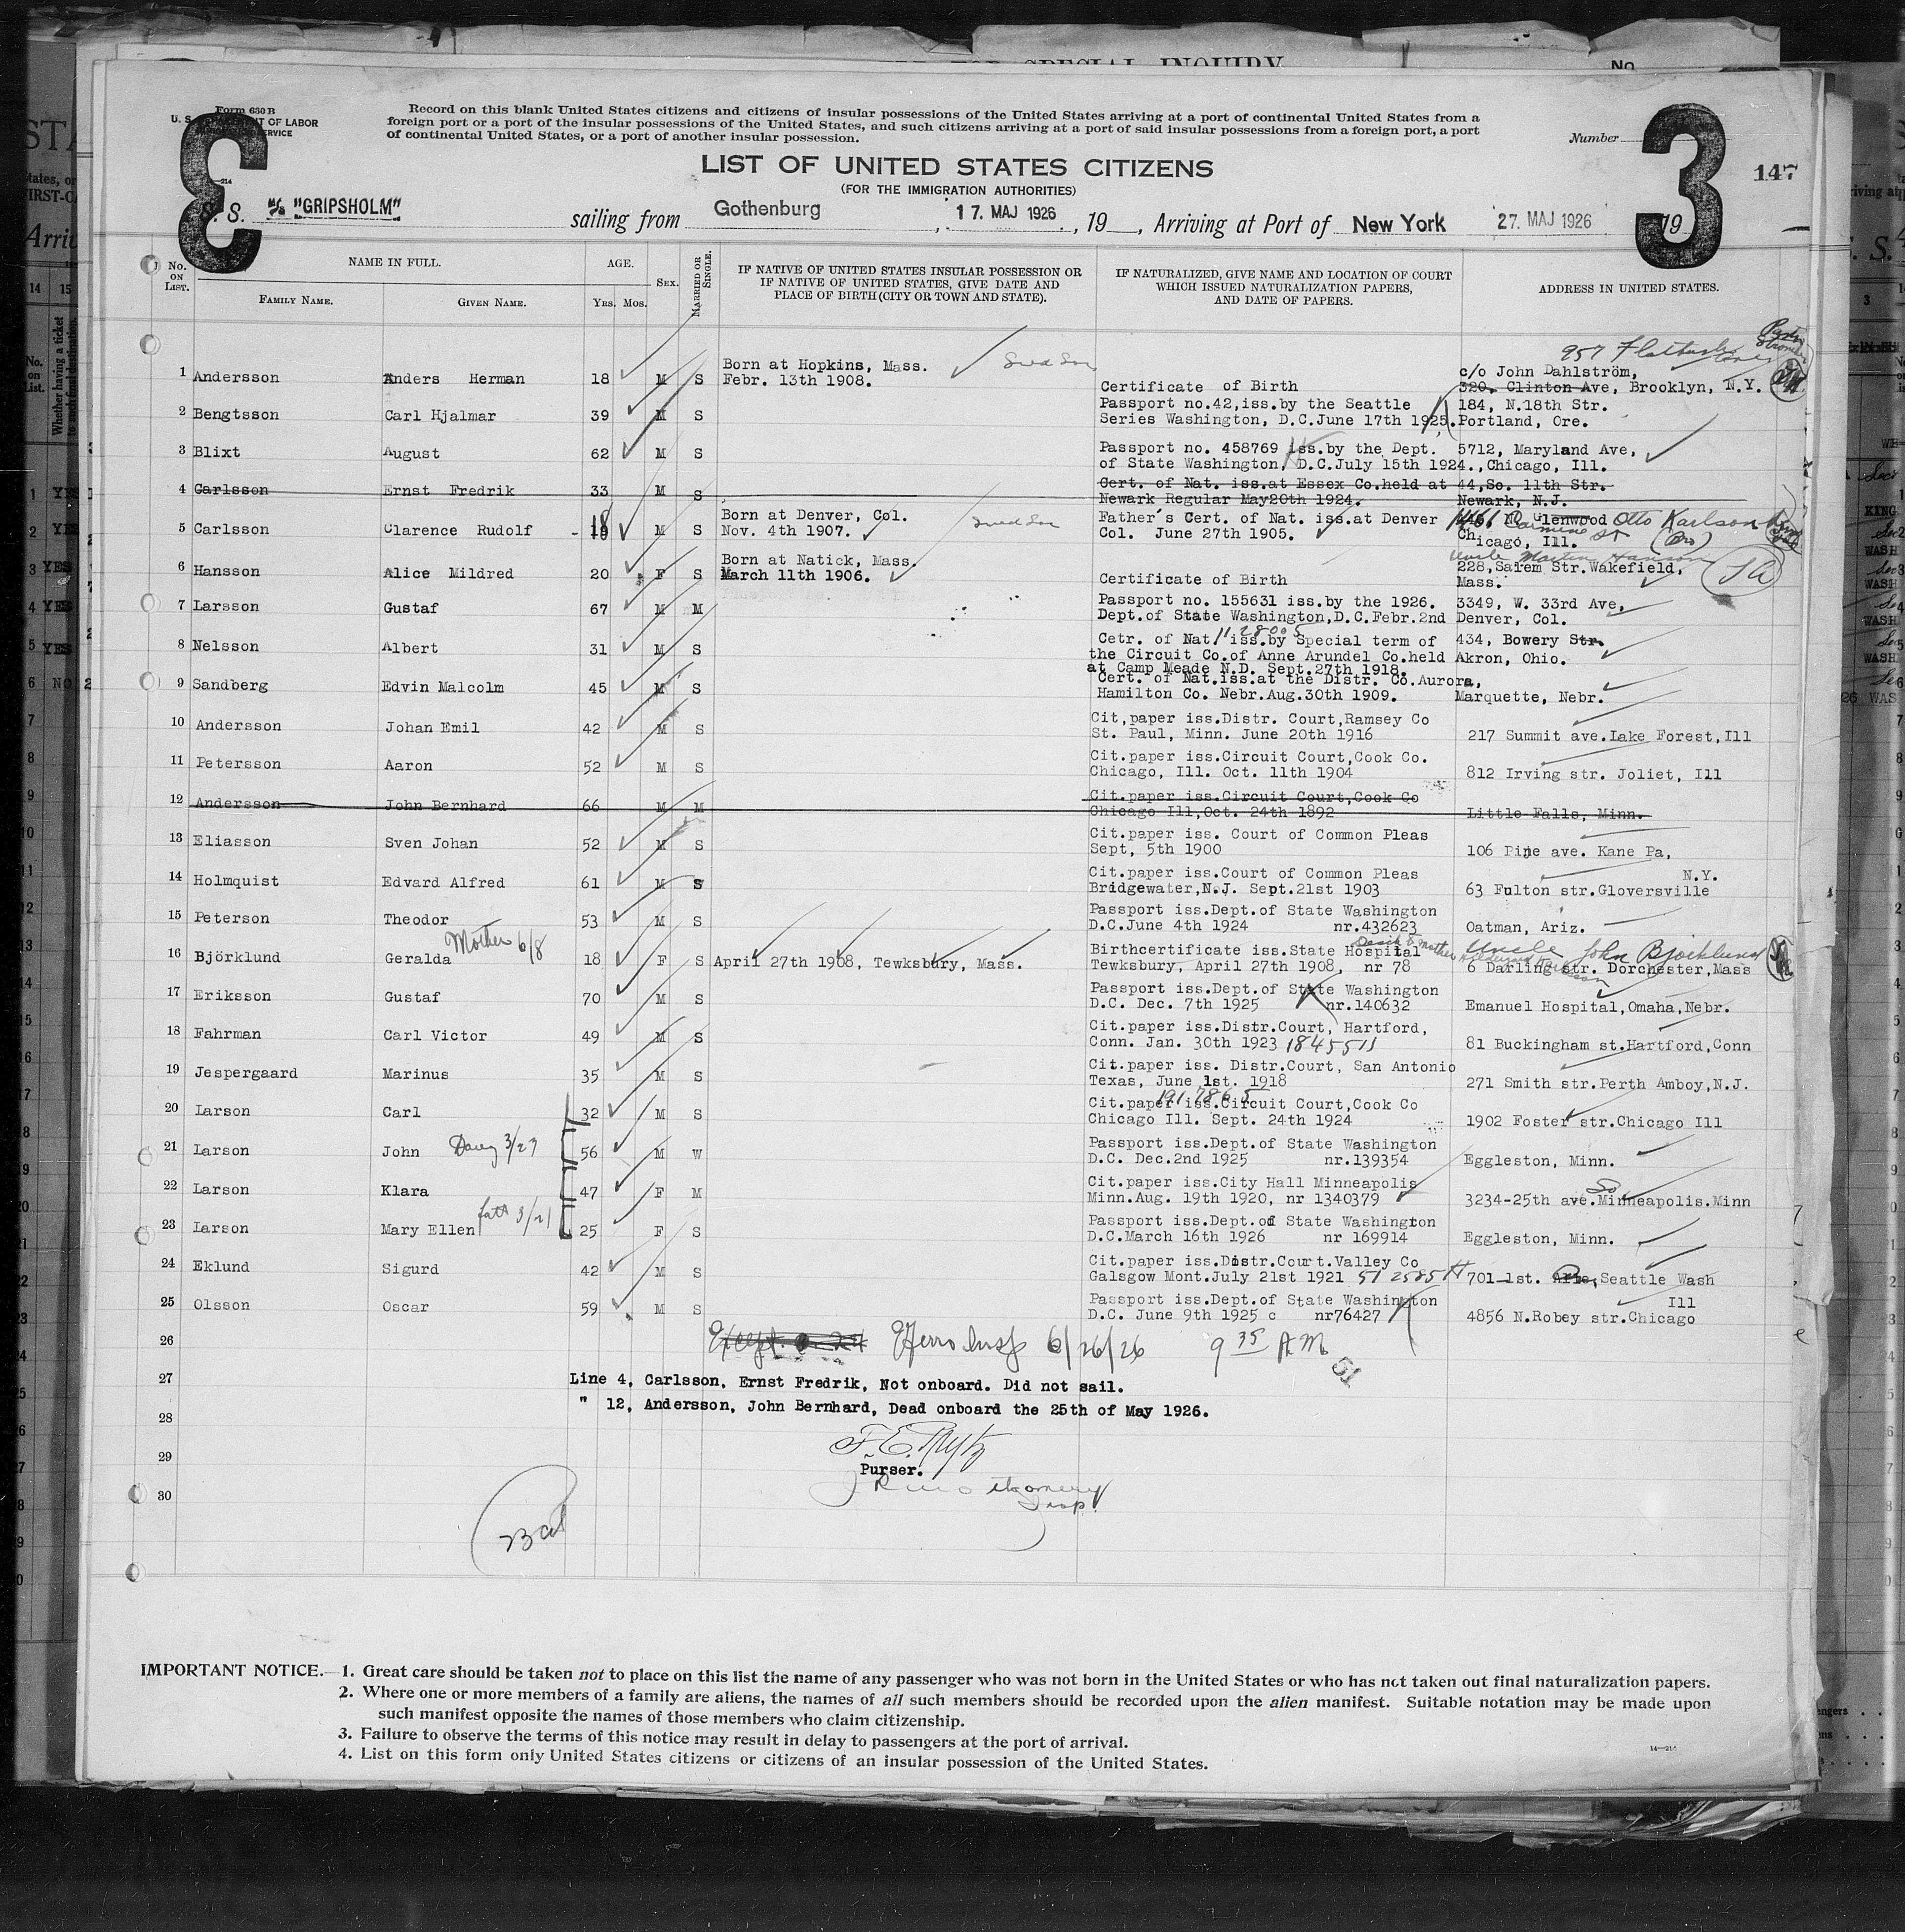 Form 630 B
U. S. DEPARTMENT OF LABOR
IMMIGRATION SERVICE
Record on this blank United States citizens and citizens of insular possessions of the United States arriving at a port of continental United States from a
foreign port or a port of the insular possessions of the United States, and such citizens arriving at a port of said insular possessions from a foreign port, a port
of continental United States, or a port of another insular possession.
Number
3
3
147
LIST OF UNITED STATES CITIZENS
(FOR THE IMMIGRATION AUTHORITIES)
S. S. M/S "GRIPSHOLM" sailing from Gothenburg, 17. MAJ 1926, 19__, Arriving at Port of New York 27. MAJ 1926 19
No. ON LIST.
NAME IN FULL.
FAMILY NAME. GIVEN NAME.
AGE.
YRS. MOS.
SEX.
MARRIED OR SINGLE.
IF NATIVE OF UNITED STATES INSULAR POSSESSION OR
IF NATIVE OF UNITED STATES, GIVE DATE AND
PLACE OF BIRTH (CITY OR TOWN AND STATE).
IF NATURALIZED, GIVE NAME AND LOCATION OF COURT
WHICH ISSUED NATURALIZATION PAPERS,
AND DATE OF PAPERS.
ADDRESS IN UNITED STATES.
957 Flatbush
1 Andersson Anders Herman 18 M S Born at Hopkins, Mass.
Febr. 13th 1908. Certificate of Birth c/o John Dahlström,
320. Clinton Ave, Brooklyn, N.Y.
2 Bengtsson Carl Hjalmar 39 M S Passport no.42,iss.by the Seattle 184, N.18th Str.
Series Washington, D.C.June 17th 1925. Portland, Ore.
3 Blixt August 62 M S Passport no. 458769 iss.by the Dept. 5712, Maryland Ave,
of State Washington, D.C.July 15th 1924., Chicago, Ill.
4 Carlsson Ernst Fredrik 33 M S Cert. of Nat. iss.at Essex Co.held at 44,So. 11th Str.
Newark Regular May20th 1924. Newark, N.J.
5 Carlsson Clarence Rudolf 18 M S Born at Denver, Col. Father's Cert. of Nat. iss.at Denver Glenwood Otto Karlson
Nov. 4th 1907. Col. June 27th 1905. Chicago, Ill. (Bro)
Uncle Martin Hanson
6 Hansson Alice Mildred 20 F S Born at Natick, Mass.
March 11th 1906. Certificate of Birth 228,Salem Str.Wakefield,
Mass.
7 Larsson Gustaf 67 M M Passport no. 155631 iss.by the 1926. 3349, W. 33rd Ave,
Dept.of State Washington,D.C.Febr.2nd Denver, Col.
8 Nelsson Albert 31 M S Cetr. of Nat. iss.by Special term of 434, Bowery Str.
the Circuit Co.of Anne Arundel Co.held Akron, Ohio.
at Camp Meade N.D. Sept.27th 1918.
9 Sandberg Edvin Malcolm 45 M S Cert. of Nat.iss.at the Distr. Co.Aurora,
Hamilton Co. Nebr.Aug.30th 1909. Marquette, Nebr.
10 Andersson Johan Emil 42 M S Cit,paper iss.Distr. Court,Ramsey Co
St. Paul, Minn. June 20th 1916 217 Summit ave.Lake Forest,Ill
11 Petersson Aaron 52 M S Cit.paper iss.Circuit Court,Cook Co.
Chicago, Ill. Oct. 11th 1904 812 Irving str. Joliet, Ill
12 Andersson John Bernhard 66 M M Cit.paper iss.Circuit Court,Cook Co
Chicago Ill,Oct. 24th 1892 Little Falls, Minn.
13 Eliasson Sven Johan 52 M S Cit.paper iss. Court of Common Pleas
Sept, 5th 1900 106 Pine ave. Kane Pa,
14 Holmquist Edvard Alfred 61 M S Cit.paper iss.Court of Common Pleas N.Y.
Bridgewater,N.J. Sept.21st 1903 63 Fulton str.Gloversville
15 Peterson Theodor 53 M S Passport iss.Dept.of State Washington
D.C.June 4th 1924 nr.432623 Oatman, Ariz.
Mother 6/8
16 Björklund Geralda 18 F S April 27th 1908, Tewksbury, Mass. Birthcertificate iss.State Hospital Uncle John Bjorklund
Tewksbury, April 27th 1908, nr 78 6 Darling str. Dorchester,Mass
17 Eriksson Gustaf 70 M S Passport iss.Dept.of State Washington
D.C. Dec. 7th 1925 nr.140632 Emanuel Hospital,Omaha,Nebr.
18 Fahrman Carl Victor 49 M S Cit.paper iss.Distr.Court, Hartford,
Conn. Jan. 30th 1923 1845511 81 Buckingham st.Hartford,Conn
19 Jespergaard Marinus 35 M S Cit.paper iss. Distr.Court, San Antonio
Texas, June 1st. 1918 271 Smith str.Perth Amboy,N.J.
20 Larson Carl 32 M S Cit.paper iss.Circuit Court,Cook Co
Chicago Ill. Sept. 24th 1924 1902 Foster str.Chicago Ill
21 Larson John 3/27 56 M W Passport iss.Dept.of State Washington
D.C. Dec.2nd 1925 nr.139354 Eggleston, Minn.
22 Larson Klara 47 F M Cit.paper iss.City Hall Minneapolis So
Minn.Aug. 19th 1920, nr 1340379 3234-25th ave.Minneapolis.Minn
23 Larson Mary Ellen 3/21 25 F S Passport iss.Dept.of State Washington
D.C.March 16th 1926 nr 169914 Eggleston, Minn.
24 Eklund Sigurd 42 M S Cit.paper iss.Distr.Court.Valley Co
Galsgow Mont.July 21st 1921 701-1st. Seattle Wash
25 Olsson Oscar 59 M S Passport iss.Dept.of State Washington Ill
D.C. June 9th 1925 c nr76427 4856 N.Robey str.Chicago
26 6/26/26 9 35 AM
51
27 Line 4, Carlsson, Ernst Fredrik, Not onboard. Did not sail.
28 " 12, Andersson, John Bernhard, Dead onboard the 25th of May 1926.
29
Purser.
30 Insp.
IMPORTANT NOTICE.—1. Great care should be taken not to place on this list the name of any passenger who was not born in the United States or who has not taken out final naturalization papers.
2. Where one or more members of a family are aliens, the names of all such members should be recorded upon the alien manifest. Suitable notation may be made upon
such manifest opposite the names of those members who claim citizenship.
3. Failure to observe the terms of this notice may result in delay to passengers at the port of arrival.
4. List on this form only United States citizens or citizens of an insular possession of the United States.